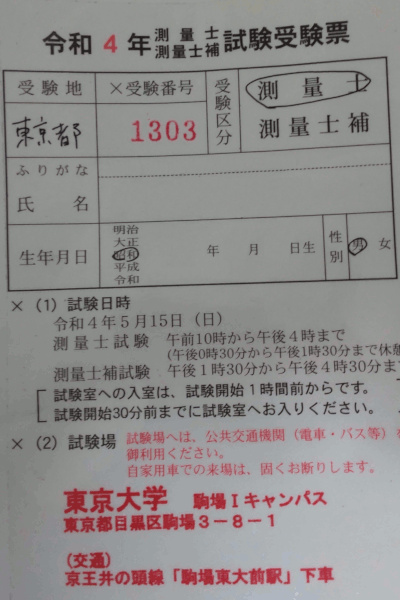 令和 4 年 測量士 測量士補 試験受験票
受験地 ×受験番号 受験区分 測量士
東京都 1303 測量士補
ふりがな
氏名
生年月日 明治 大正 昭和 平成 令和 年 月 日生 性別 男 女
× (1) 試験日時
令和4年5月15日(日)
測量士試験 午前10時から午後4時まで
(午後0時30分から午後1時30分まで休憩
測量士補試験 午後1時30分から午後4時30分ま
試験室への入室は、試験開始1時間前からです。
試験開始30分前までに試験室へお入りください。
× (2) 試験場 試験場へは、公共交通機関(電車・バス等)を
御利用ください。
自家用車での来場は、固くお断りします。
東京大学 駒場Ⅰキャンパス
東京都目黒区駒場3-8-1
(交通)
京王井の頭線「駒場東大前駅」下車